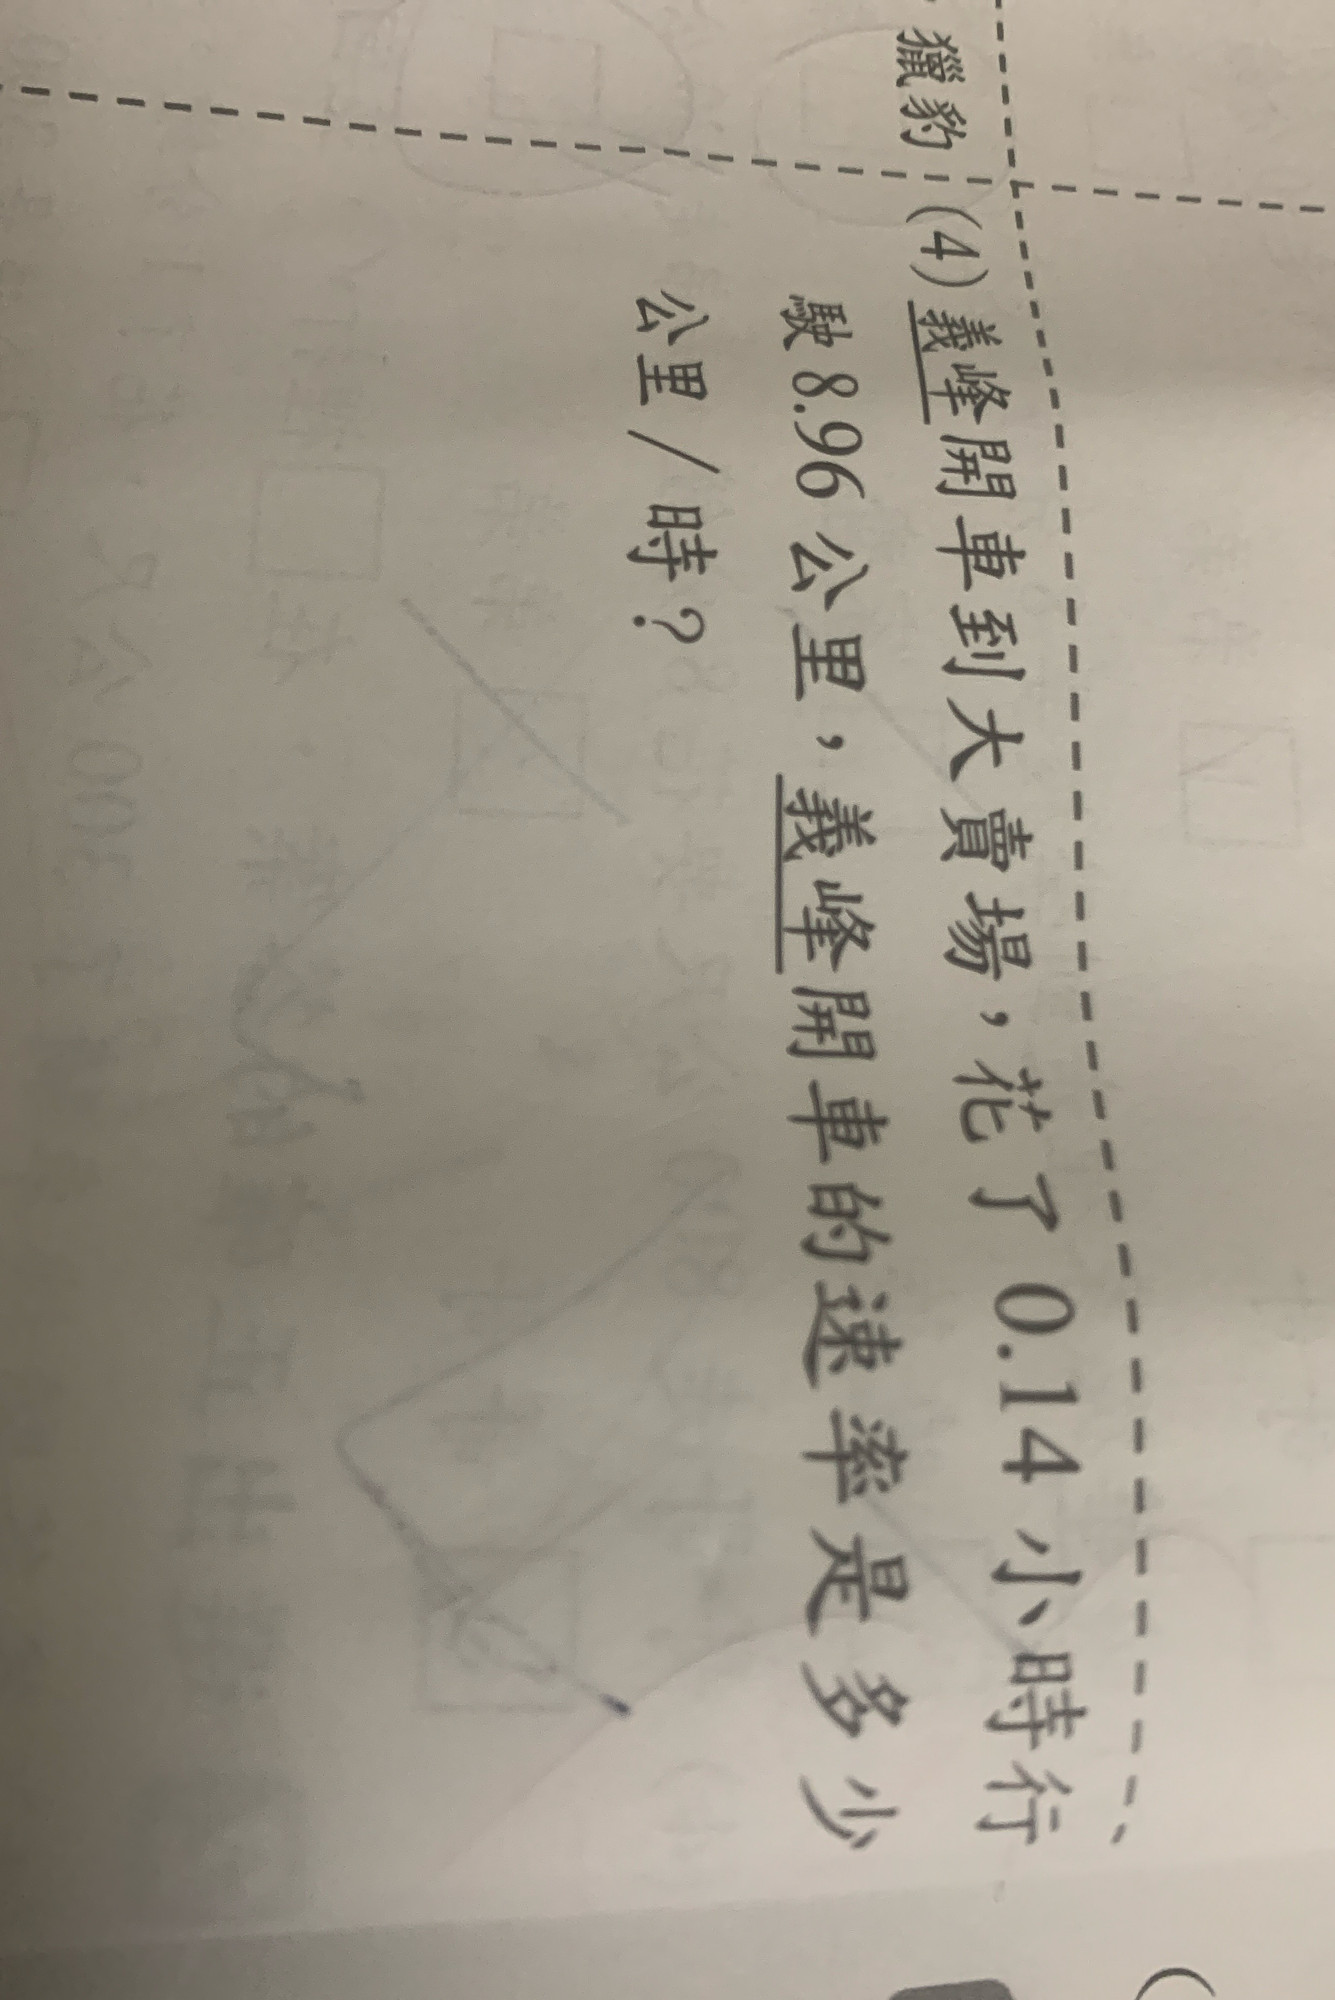 獵豹
(4)義峰開車到大賣場，花了0.14小時行
駛8.96公里，義峰開車的速率是多少
公里/時？